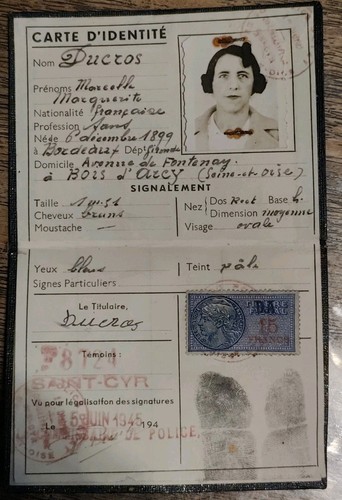 CARTE D'IDENTITÉ
Nom Ducros
Prénoms Marcelle
Marguerite
Nationalité française
Profession Sans
Née 6 décembre 1899
à Bordeaux Dépt Gironde
Domicile Avenue de Fontenay
à Bois d'Arcy (Seine-et-Oise)
SIGNALEMENT
Taille 1m51
Cheveux bruns
Moustache —
Nez Dos Rect Base h.
Dimension moyenne
Visage ovale
Yeux bleus Teint pâle
Signes Particuliers
Le Titulaire,
Ducros
Témoins :
SAINT-CYR
Vu pour légalisation des signatures
Le 5 JUIN 1945 194
DE POLICE
15
FRANCS